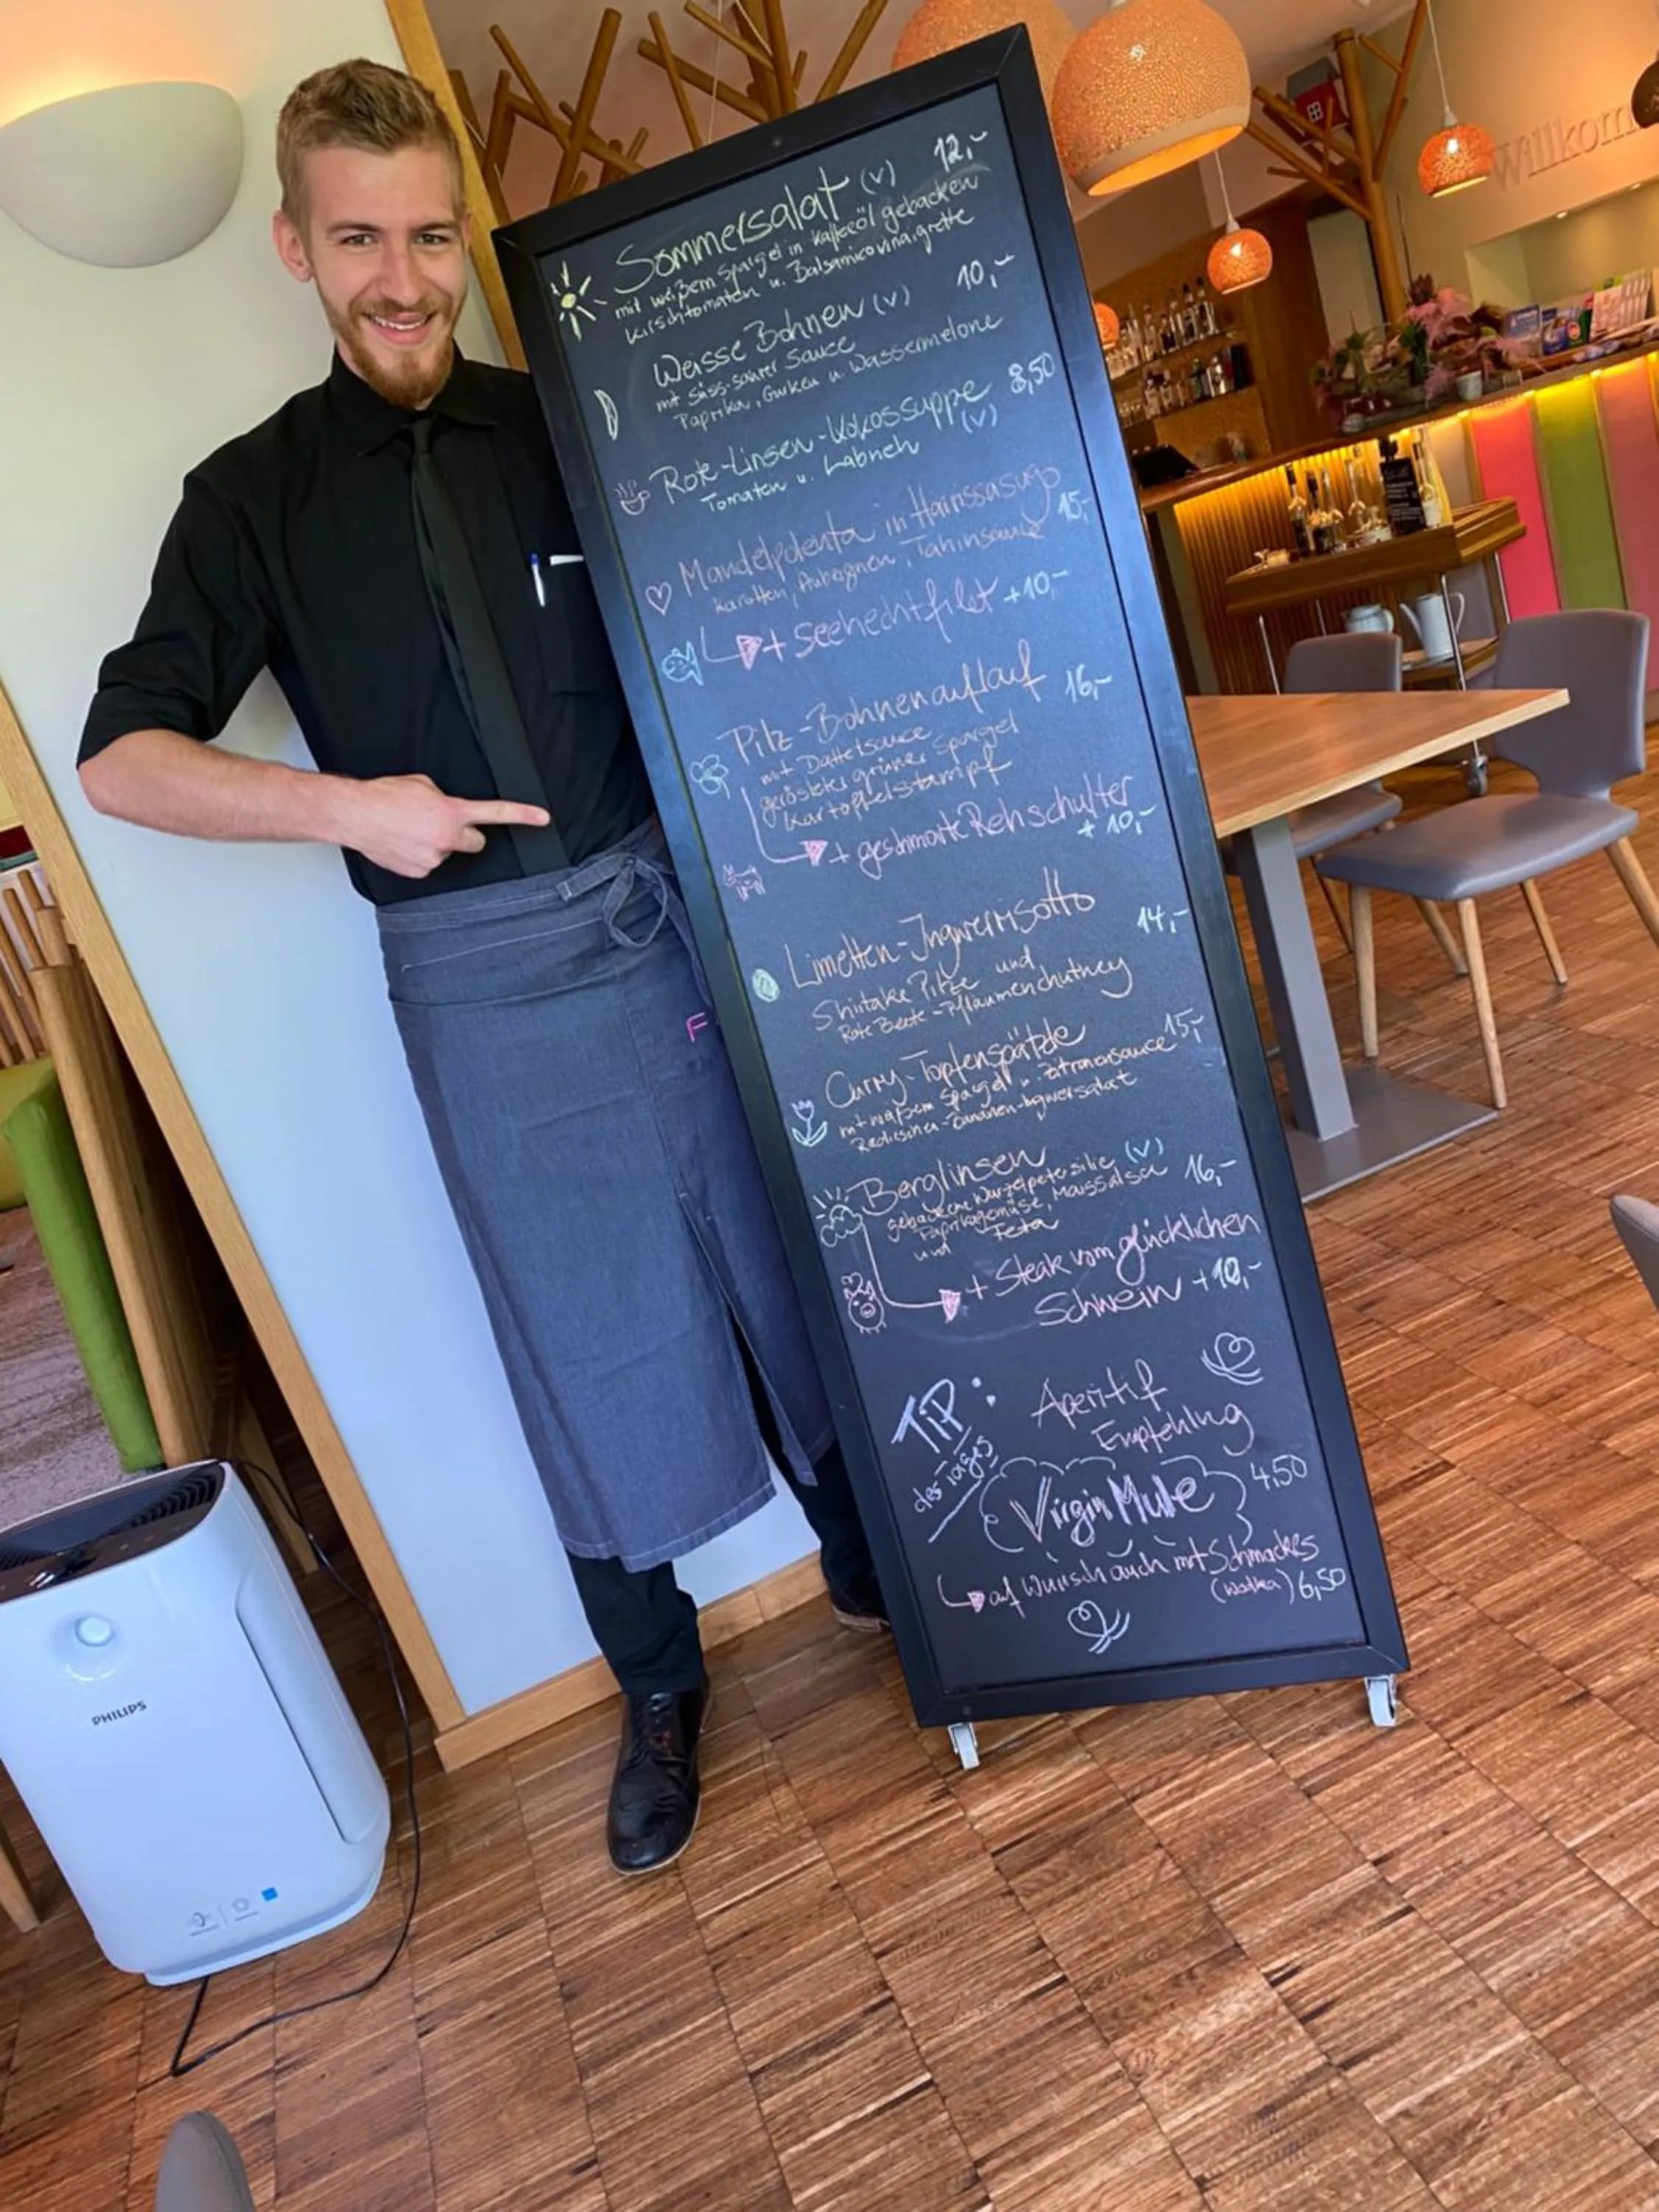 Sommersalat (v) 12,-
mit weißem Spargel in Kaffeeöl gebacken
Kirschtomaten u. Balsamicovinaigrette
Weisse Bohnen (v) 10,-
mit Süss-saurer Sauce
Paprika, Gurken u. Wassermelone
Rote-Linsen-Kokossuppe 8,50
(v)
Tomaten u. Labneh
Mandelpolenta in Harissasugo
Karotten, Auberginen, Tahinsauce 15,-
+ Seehechtfilet +10,-
Pilz-Bohnenauflauf 16,-
mit Dattelsauce
gerösteter grüner Spargel
Kartoffelstampf
+ geschmorte Rehschulter
+ 10,-
Limetten-Ingwerrisotto 14,-
Shiitake Pilze und
Rote Beete-Pflaumenchutney
Curry-Topfenspätzle 15,-
mit weißem Spargel u. Zitronensauce
Radieschen-Bananen-Ingwersalat
Berglinsen (v) 16,-
gebackene Wurzelpetersilie
Paprikagemüse, Maissalsa
und Feta
+ Steak vom glücklichen
Schwein +10,-
TIP:
des Tages
Aperitif
Empfehlung
Virgin Mule 4,50
auf Wunsch auch mit Schmackes
(Wodka) 6,50
Willkom
PHILIPS
F